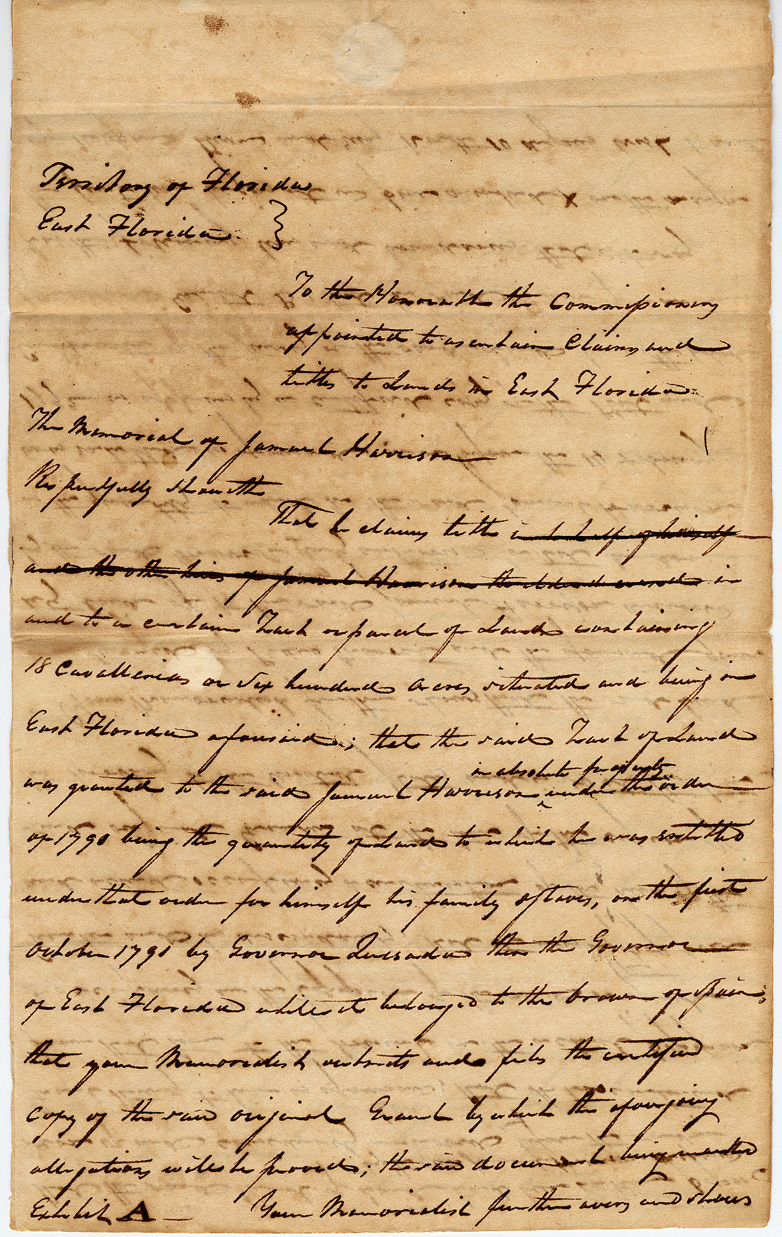 Territory of Florida
East Florida }
To the Honorable the Commissioners
appointed to ascertain Claims and
titles to Lands in East Florida
The Memorial of Samuel Harrison
Respectfully Sheweth
That he claims title in behalf of himself
and the other heirs of Samuel Harrison the elder deceased in
and to a certain Tract or parcel of Land containing
18 Cavallerias or Six hundred Acres situated and being in
East Florida aforesaid; that the said Tract of Land
in absolute property
was granted to the said Samuel Harrison under the order
of 1790 being the quantity of Land to which he was entitled
under that order for himself his family & slaves, on the first
October 1791 by Governor Quesada then the Governor
of East Florida whilst it belonged to the Crown of Spain;
that your Memorialist submits and files the certified
copy of the said original Grant by which the foregoing
allegations will be proved; the said document being marked
Exhibit A — Your Memorialist further avers and shews